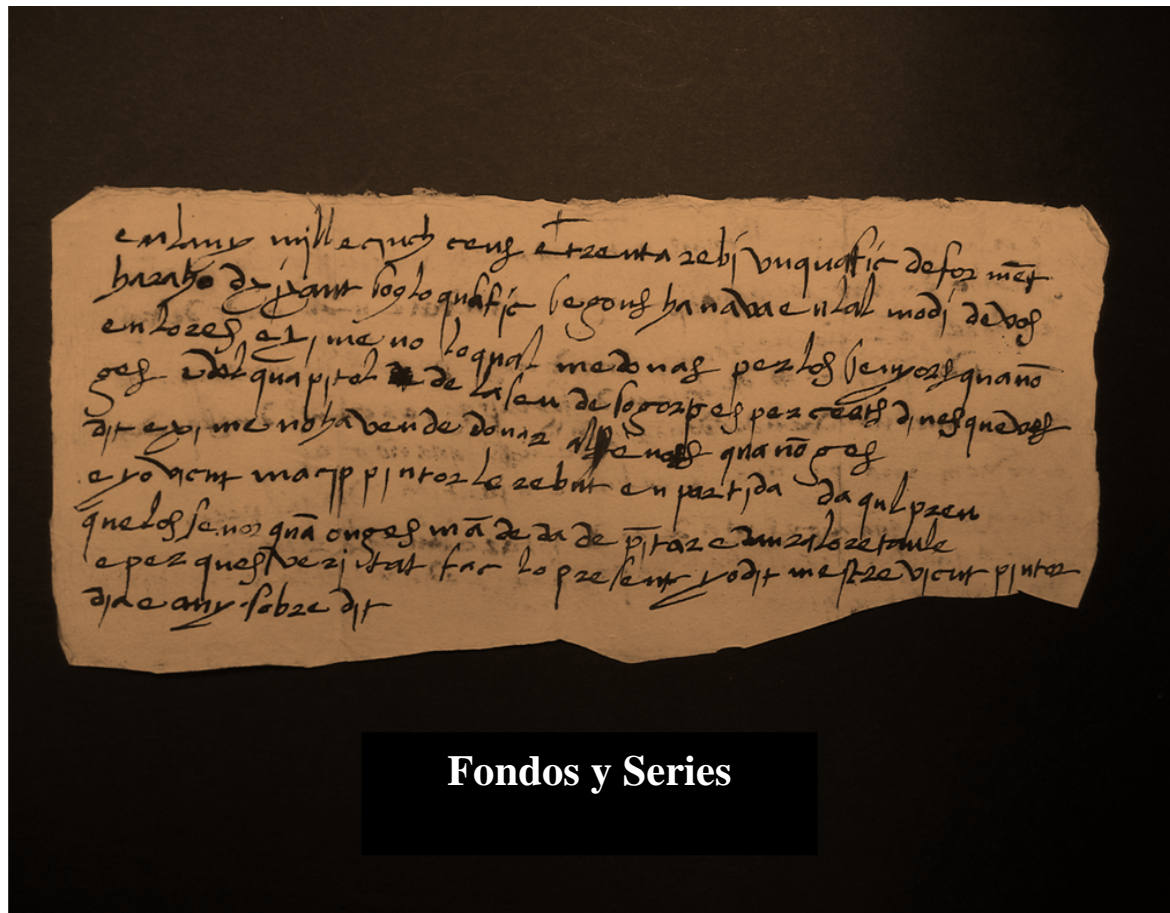 en lany mill e cinch cens e trenta rebi un quafic de forment
haraho de
lo quafic segons hanava en lal modi de vos
en lores e ximeno loqual me donas per los senyors quano
ges del quapitol de la seu de sogorp es per
dines que vos
dit eximeno haven de donar als
quanoges
e yo vicent macip pintor le rebut en partida da qul preu
que los senos quanonges man de da de pitar e daurar lo retaule
e per ques veritat fac lo present yo dit mestre vicent pintor
dia e any sobre dit
Fondos y Series